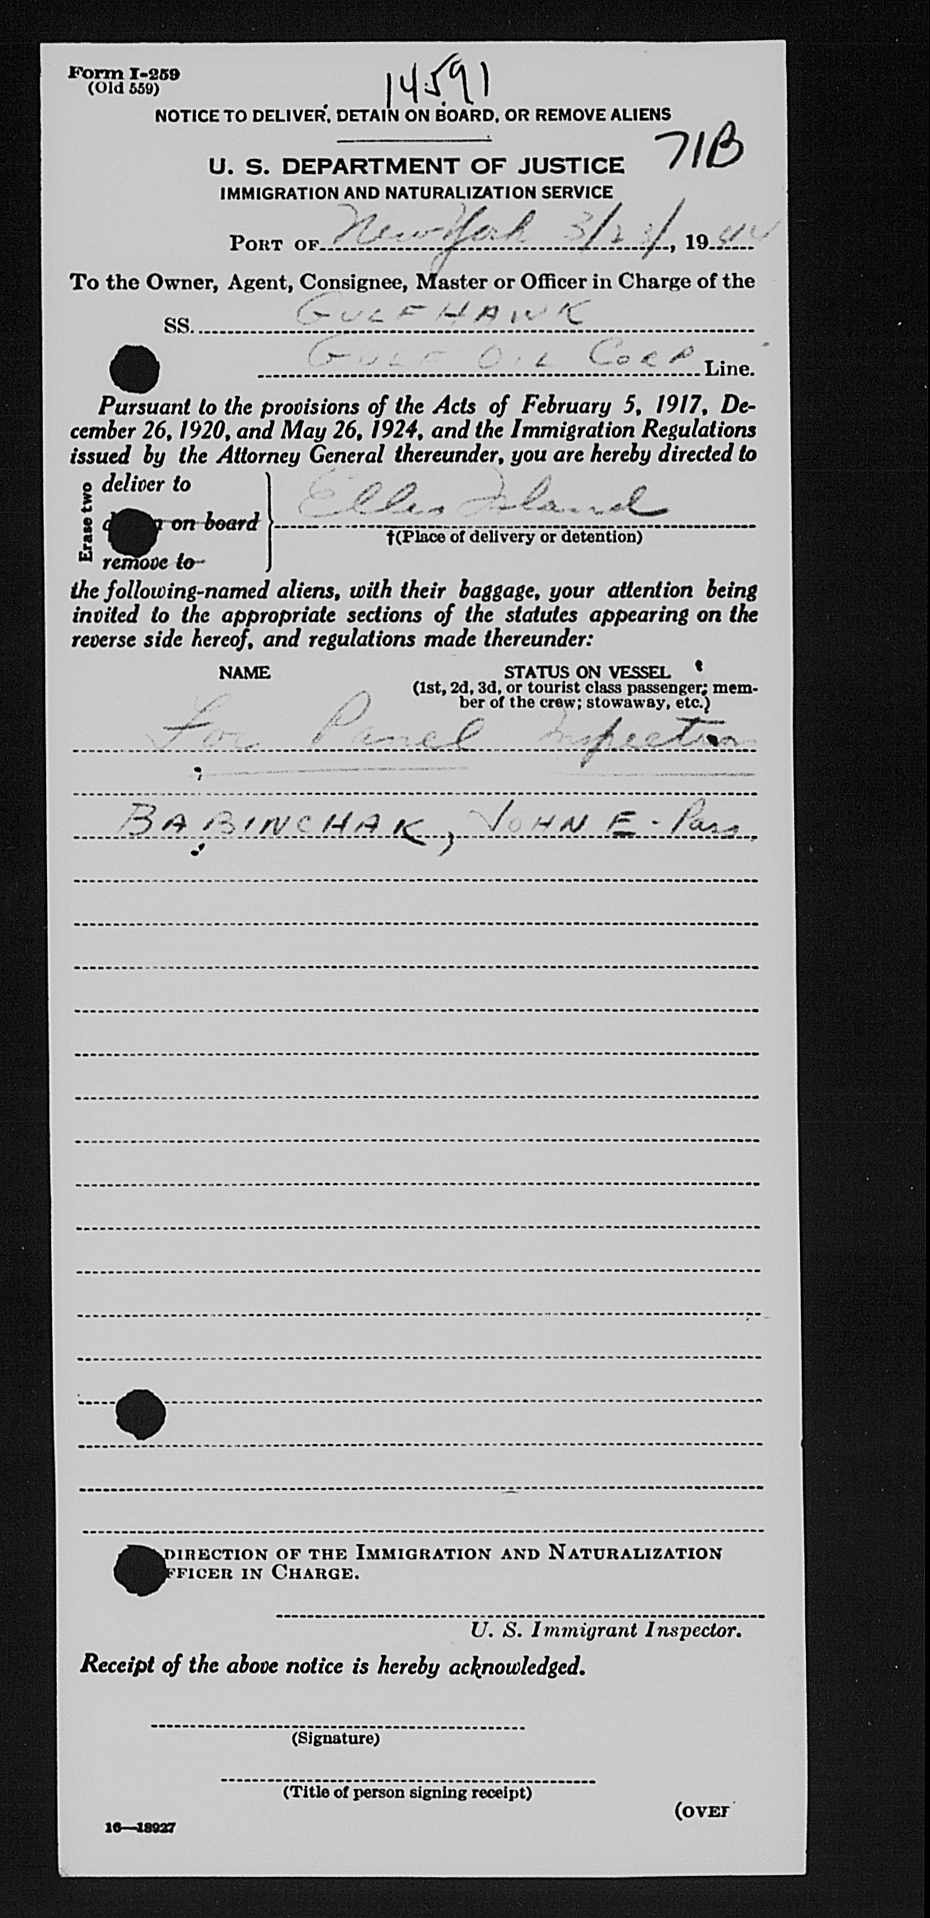 Form I-259
(Old 559)
14591
NOTICE TO DELIVER, DETAIN ON BOARD, OR REMOVE ALIENS
71B
U. S. DEPARTMENT OF JUSTICE
IMMIGRATION AND NATURALIZATION SERVICE
PORT OF New York 3/2 /, 1944
To the Owner, Agent, Consignee, Master or Officer in Charge of the
SS. GULFHAWK
GULF OIL CORP Line.
Pursuant to the provisions of the Acts of February 5, 1917, De-
cember 26, 1920, and May 26, 1924, and the Immigration Regulations
issued by the Attorney General thereunder, you are hereby directed to
Erase two
deliver to
on board
remove to
Ellis Island
†(Place of delivery or detention)
the following-named aliens, with their baggage, your attention being
invited to the appropriate sections of the statutes appearing on the
reverse side hereof, and regulations made thereunder:
NAME STATUS ON VESSEL
(1st, 2d, 3d, or tourist class passenger; mem-
ber of the crew; stowaway, etc.)
For Panel Inspection
BABINCHAK, JOHN E - Pass.
DIRECTION OF THE IMMIGRATION AND NATURALIZATION
FFICER IN CHARGE.
U. S. Immigrant Inspector.
Receipt of the above notice is hereby acknowledged.
(Signature)
(Title of person signing receipt)
(OVER
16—18927